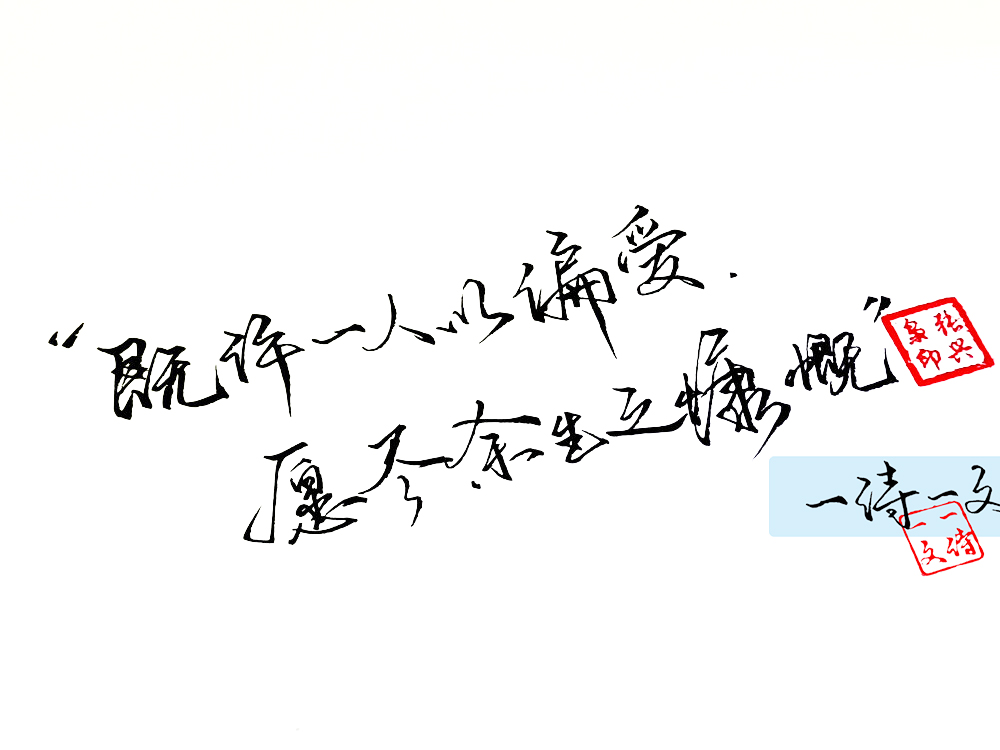 “既许一人以偏爱.
愿尽余生之慷慨”
张兴
枭印
一诗一文
一诗
一文